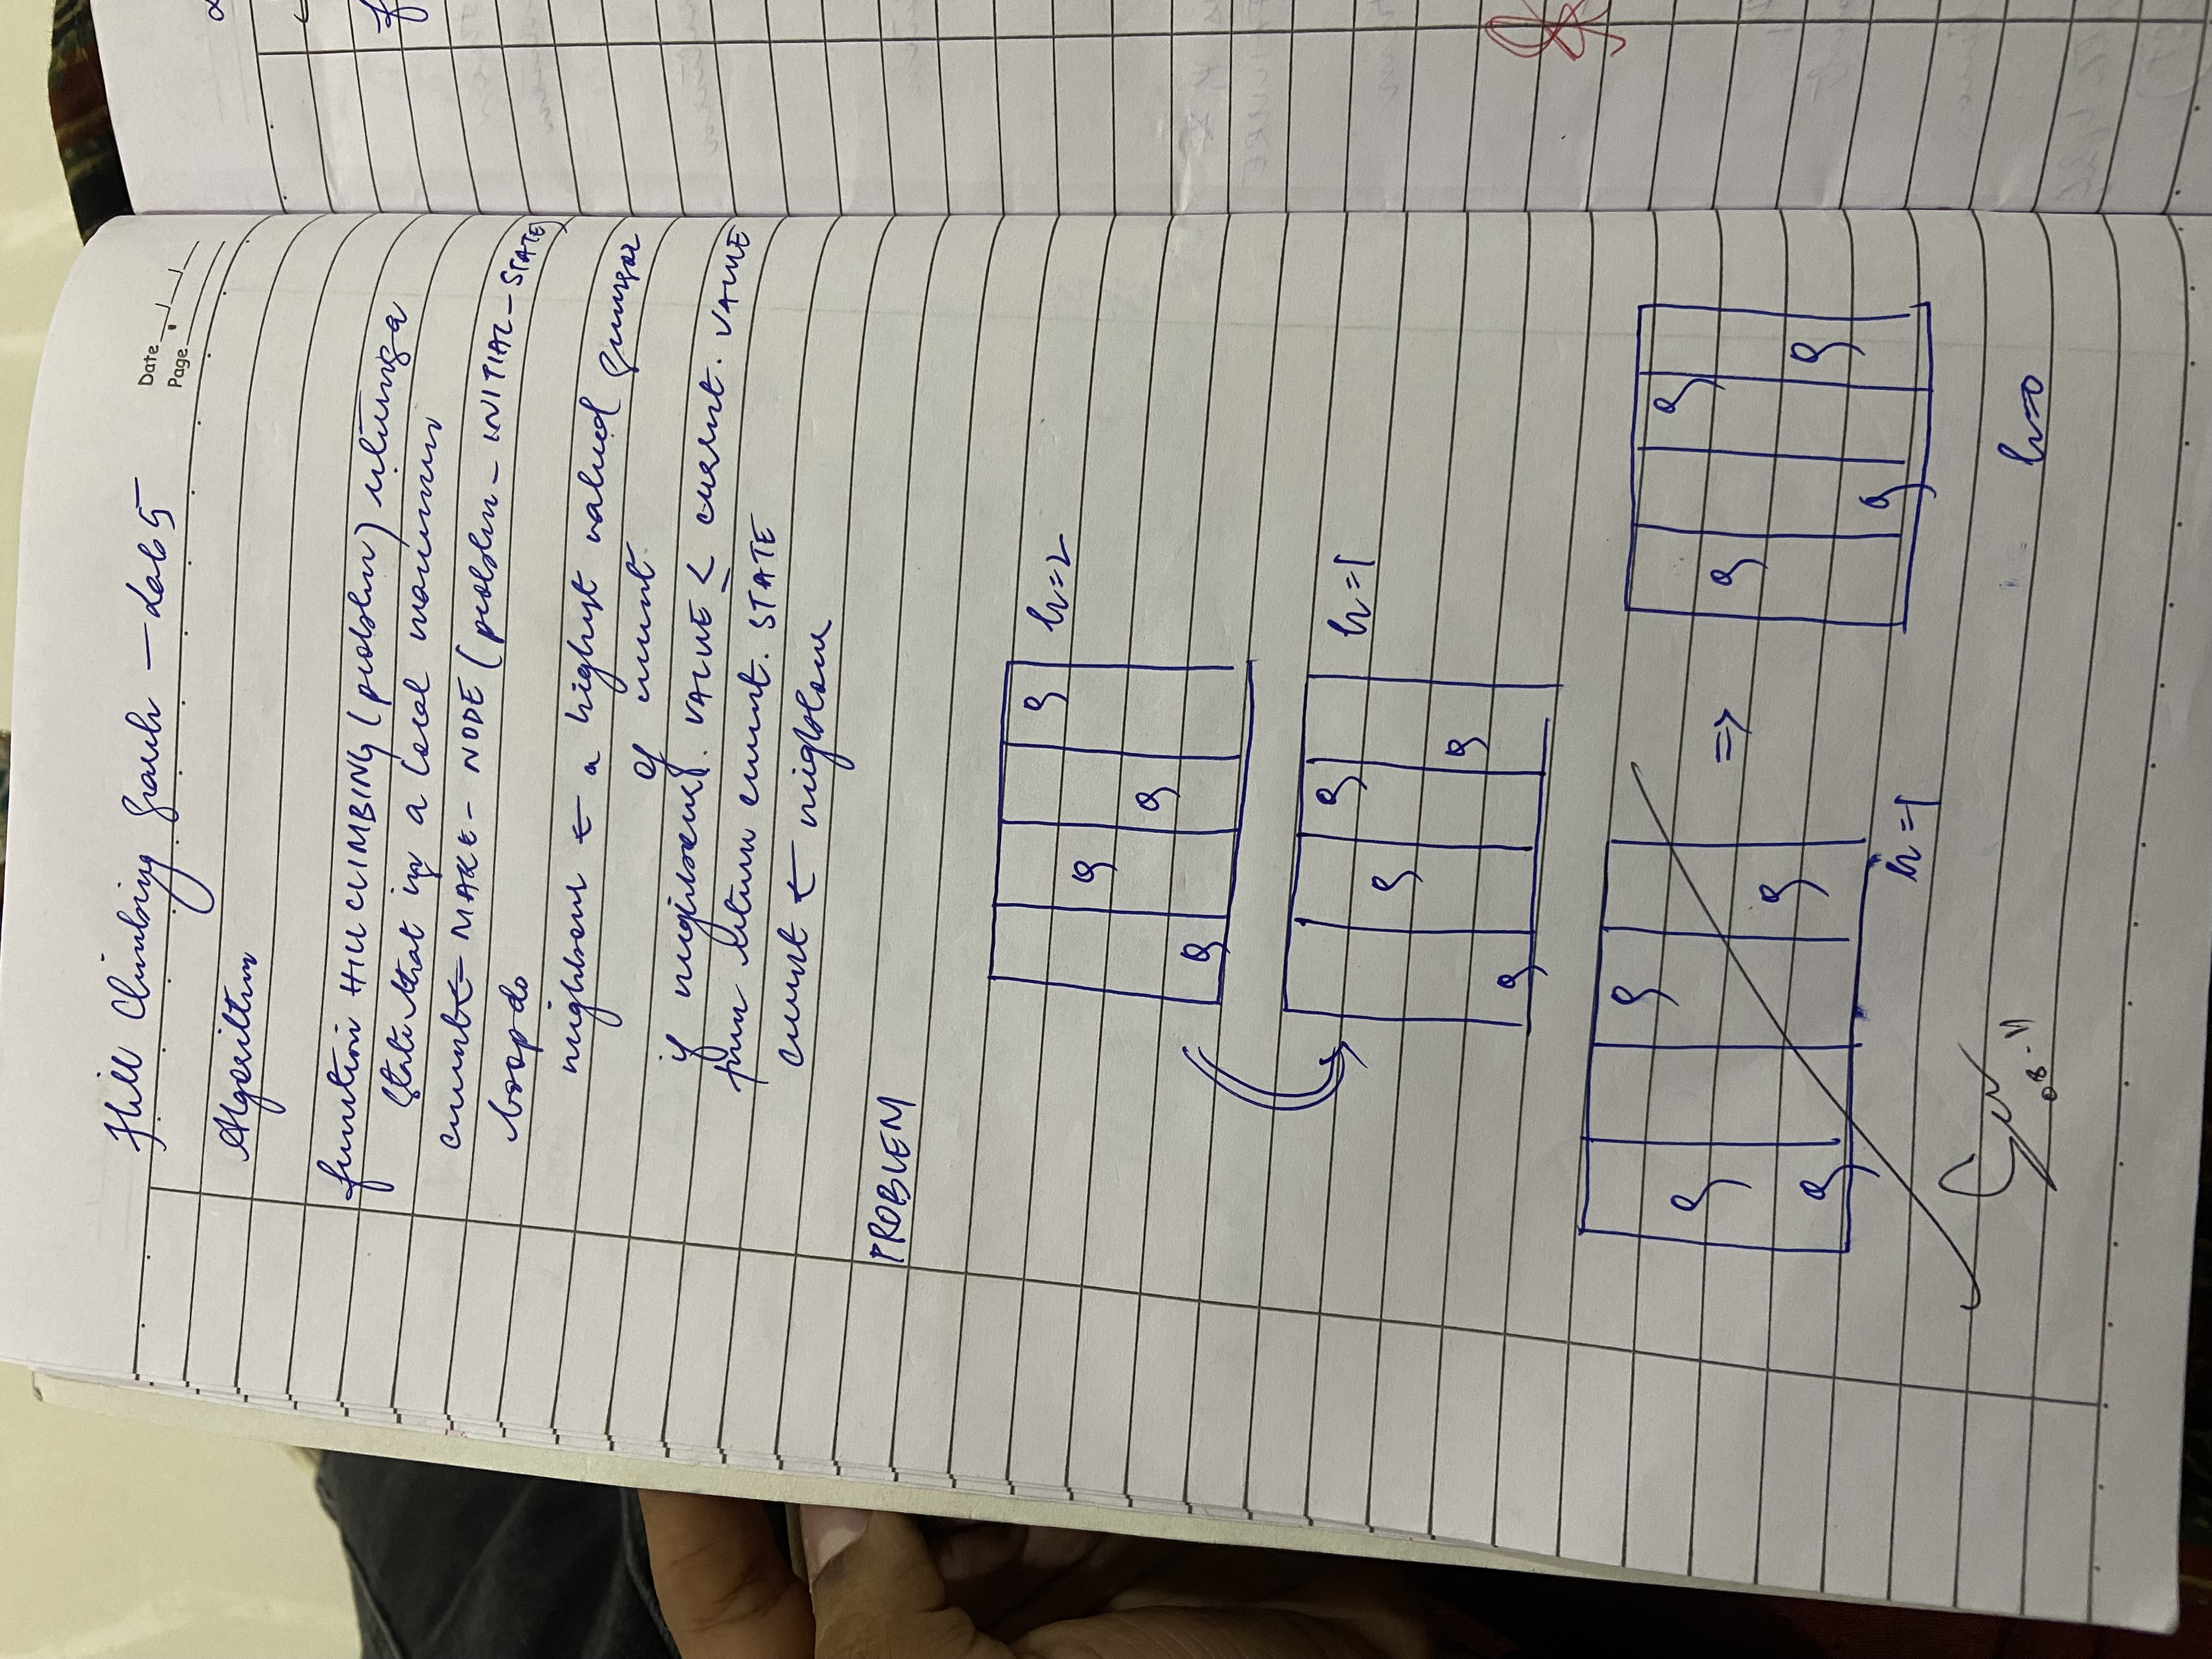 Hill Climbing Search - Lab 5
Date
Page
Algorithm
function HILL CLIMBING (problem) returns a
state that is a local maximum
current ← MAKE - NODE (problem - INITIAL - STATE)
loop do
neighbour ← a highest valued successor
of current
if neighbour. VALUE ≤ current. VALUE
then return current. STATE
current ← neighbour
PROBLEM
Q
h=2
Q
Q
Q
Q
h=1
Q
Q
Q
Q
Q
Q
Q
h=1
=>
Q
Q
Q
Q
h=0
08-11